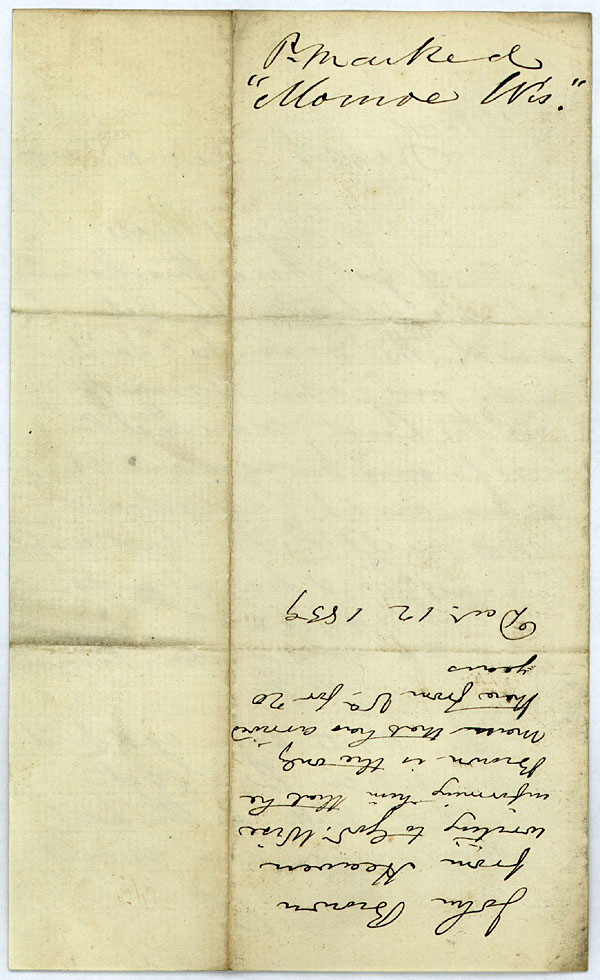 P. marked
"Monroe Wis."
John Brown
from Heaven
writing to Gov. Wise
informing him that he
Brown is the only
man that has arrived
there from Va. for 20
years
Dec. 12 1859